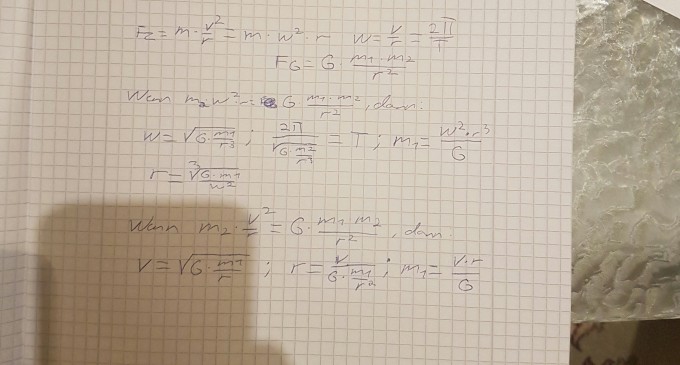 Fz = m · v²/r = m · w² · r   w = v/r = 2π/T
FG = G · m1 · m2/r²
Wenn m2 w² r = G m1 · m2/r², dann:
w = √(G · m1/r³) ; 2π/√(G · m2/r³) = T ; m1 = w² · r³/G
r = ³√(G · m1/w²)
Wenn m2 · v²/r = G · m1 m2/r², dann
v = √(G · m1/r) ; r = v/(G · m1/r²) ; m1 = v · r/G